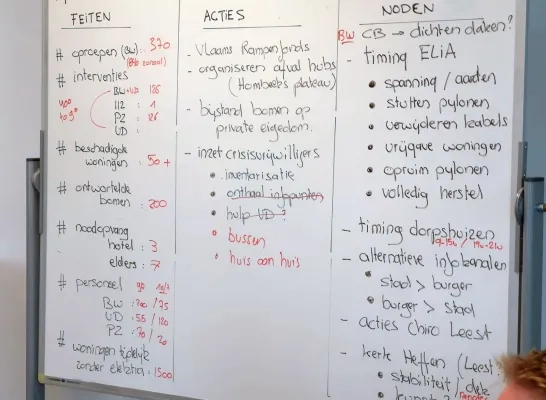 FEITEN
# oproepen (BW): 370
# interventies
BW+UD 186
112 : 1
PZ : 26
UD :
# beschadigde
woningen : 50+
# ontwortelde
bomen : 200
# noodopvang
hotel : 3
elders : 7
# personeel
BW : 200 / 75
UD : 55 / 120
PZ : 70 / 20
# woningen tijdelijk
zonder elektra : 1500
ACTIES
- Vlaams Rampenfonds
- organiseren afval hubs
(Hombeeks plateau)
- bijstand bomen op
private eigedom.
- inzet crisisvrijwilligers
• inventarisatie
• onthaal infopunten
• hulp UD ?
• bussen
• huis aan huis
NODEN
BW CB → dichten daken?
- timing ELiA
• spanning / aarden
• stutten pylonen
• verwijderen kabels
• vrijgave woningen
• opruim pylonen
• volledig herstel
- timing dorpshuizen
9-15u / 19u-21u
- alternatieve infokanalen
• stad > burger
• burger > stad
- acties Chiro Leest
- kerk Heffen (Leest?
• stabiliteit /